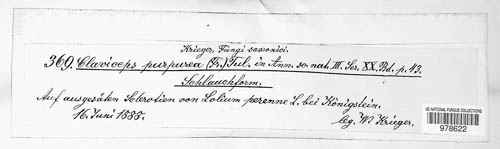 Krieger, Fungi saxonici.
369. Claviceps purpurea (Fr.) Tul. in Ann. sc. nat. III. Ser. XX. Bd. p. 43.
Schlauchform.
Auf ausgesäten Sclerotien von Lolium perenne L. bei Königstein.
16. Juni 1885. leg. W. Krieger.
US NATIONAL FUNGUS COLLECTIONS
978622